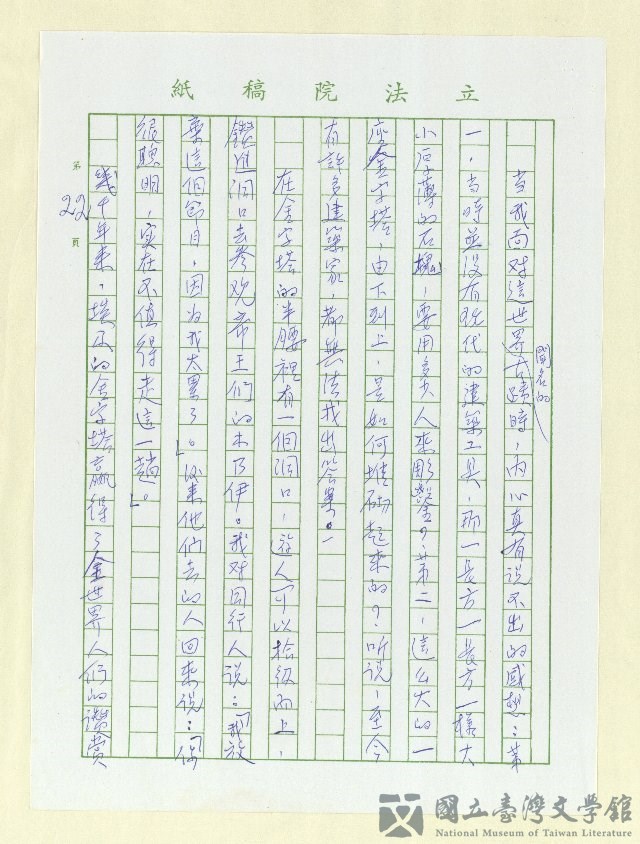 立法院稿紙
當我面对這世界聞名的古蹟時,内心真有说不出的感想:第
一,当時並没有现代的建築工具,那一長方一長方一樣大
小厚薄的石塊,要用多少人来彫鑿?;第二,這么大的一
座金字塔,由下到上,是如何堆砌起来的?听说,至今
有許多建築家,都無法找出答案。
在金字塔的半腰裡有一個洞口,遊人可以拾級而上,
鑽進洞口去参观帝王们的木乃伊。我对同行人说:「我放
棄這個節目,因为我太累了。」後来他们去的人回来说:「你
很聰明,实在不值得走這一趟。」
幾千年来,埃及的金字塔贏得了全世界人们的讚赏
第22頁
國立臺灣文學館
National Museum of Taiwan Literature